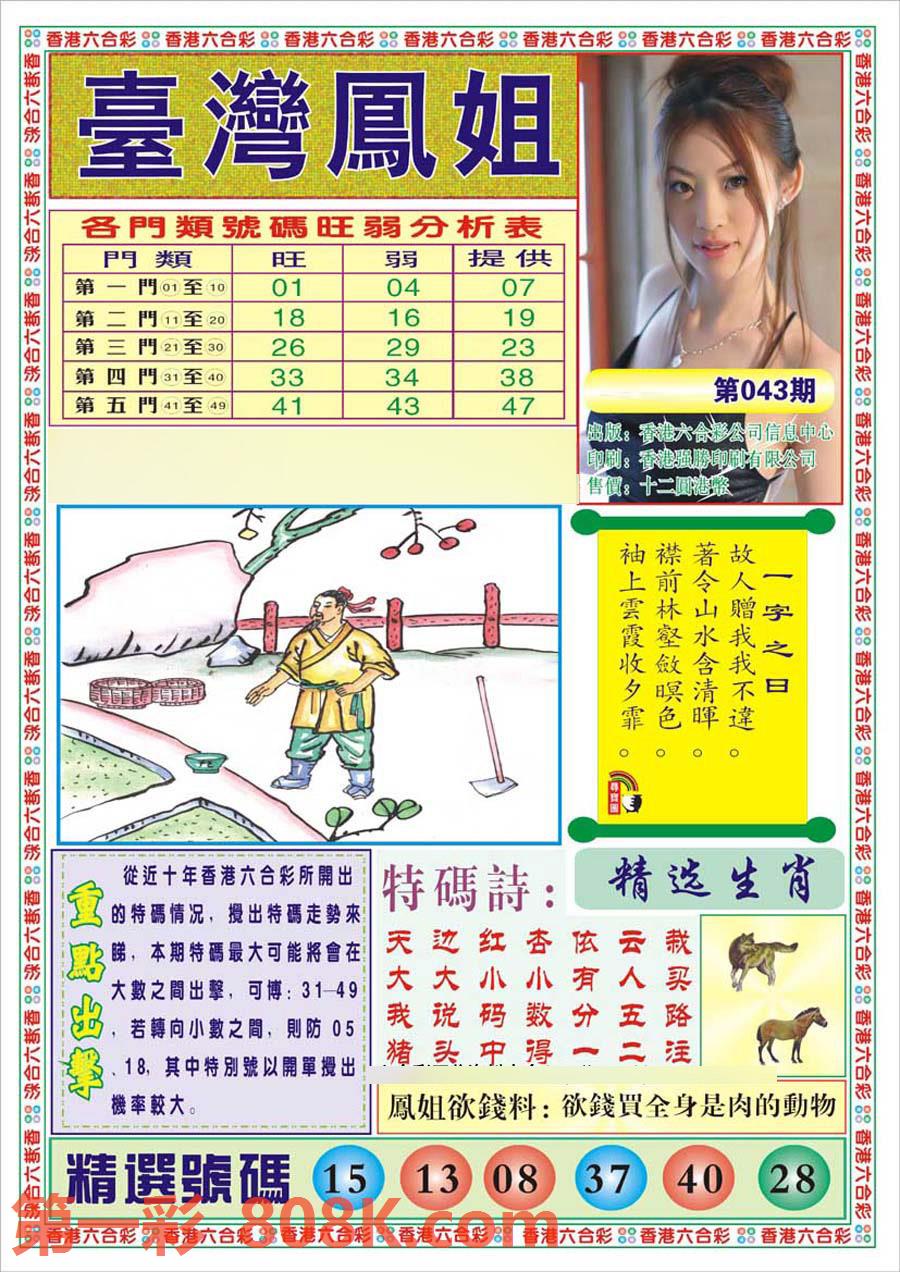 香港六合彩 香港六合彩 香港六合彩 香港六合彩 香港六合彩 香港六合彩 香港六合彩
臺灣鳳姐
各門類號碼旺弱分析表
門類 旺 弱 提供
第一門01至10 01 04 07
第二門11至20 18 16 19
第三門21至30 26 29 23
第四門31至40 33 34 38
第五門41至49 41 43 47
第043期
出版：香港六合彩公司信息中心
印刷：香港强勝印刷有限公司
售價：十二圓港幣
一字之曰
故人贈我我不違。
著令山水含清暉。
襟前林壑斂暝色。
袖上雲霞收夕霏。
尋寶圖
重點出擊
從近十年香港六合彩所開出
的特碼情况，攪出特碼走勢來
睇，本期特碼最大可能將會在
大數之間出擊，可博：31—49
，若轉向小數之間，則防 05
、18，其中特別號以開單攪出
機率較大。
特碼詩：
天边红杏依云栽
大大小小有人买
我说码数分五路
猪头中得一二注
精选生肖
鳳姐欲錢料：欲錢買全身是肉的動物
精選號碼 15 13 08 37 40 28
第一彩 808K.com
香港六合彩 香港六合彩 香港六合彩 香港六合彩 香港六合彩 香港六合彩 香港六合彩